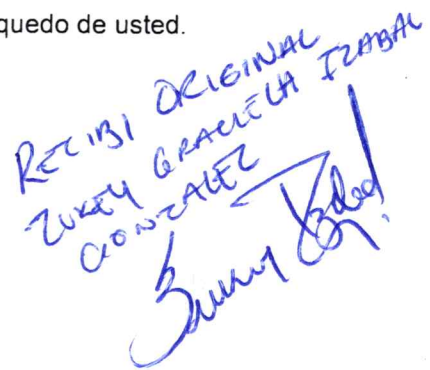 quedo de usted.
RECIBI ORIGINAL
ZUKEY GRACIELA IZABAL
GONZALEZ